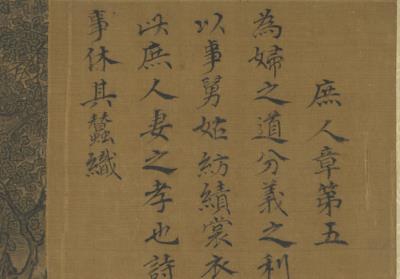 庶人章第五
為婦之道分義之利
以事舅姑紡績裳衣
此庶人妻之孝也詩
事休其蠶織